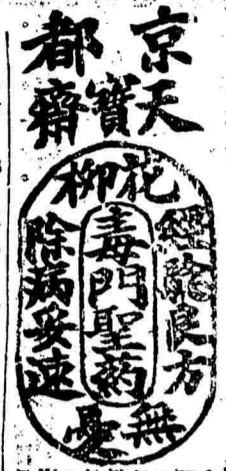 京都
天寶齋
花柳
毒門聖藥
經驗良方
除病妥速
無憂